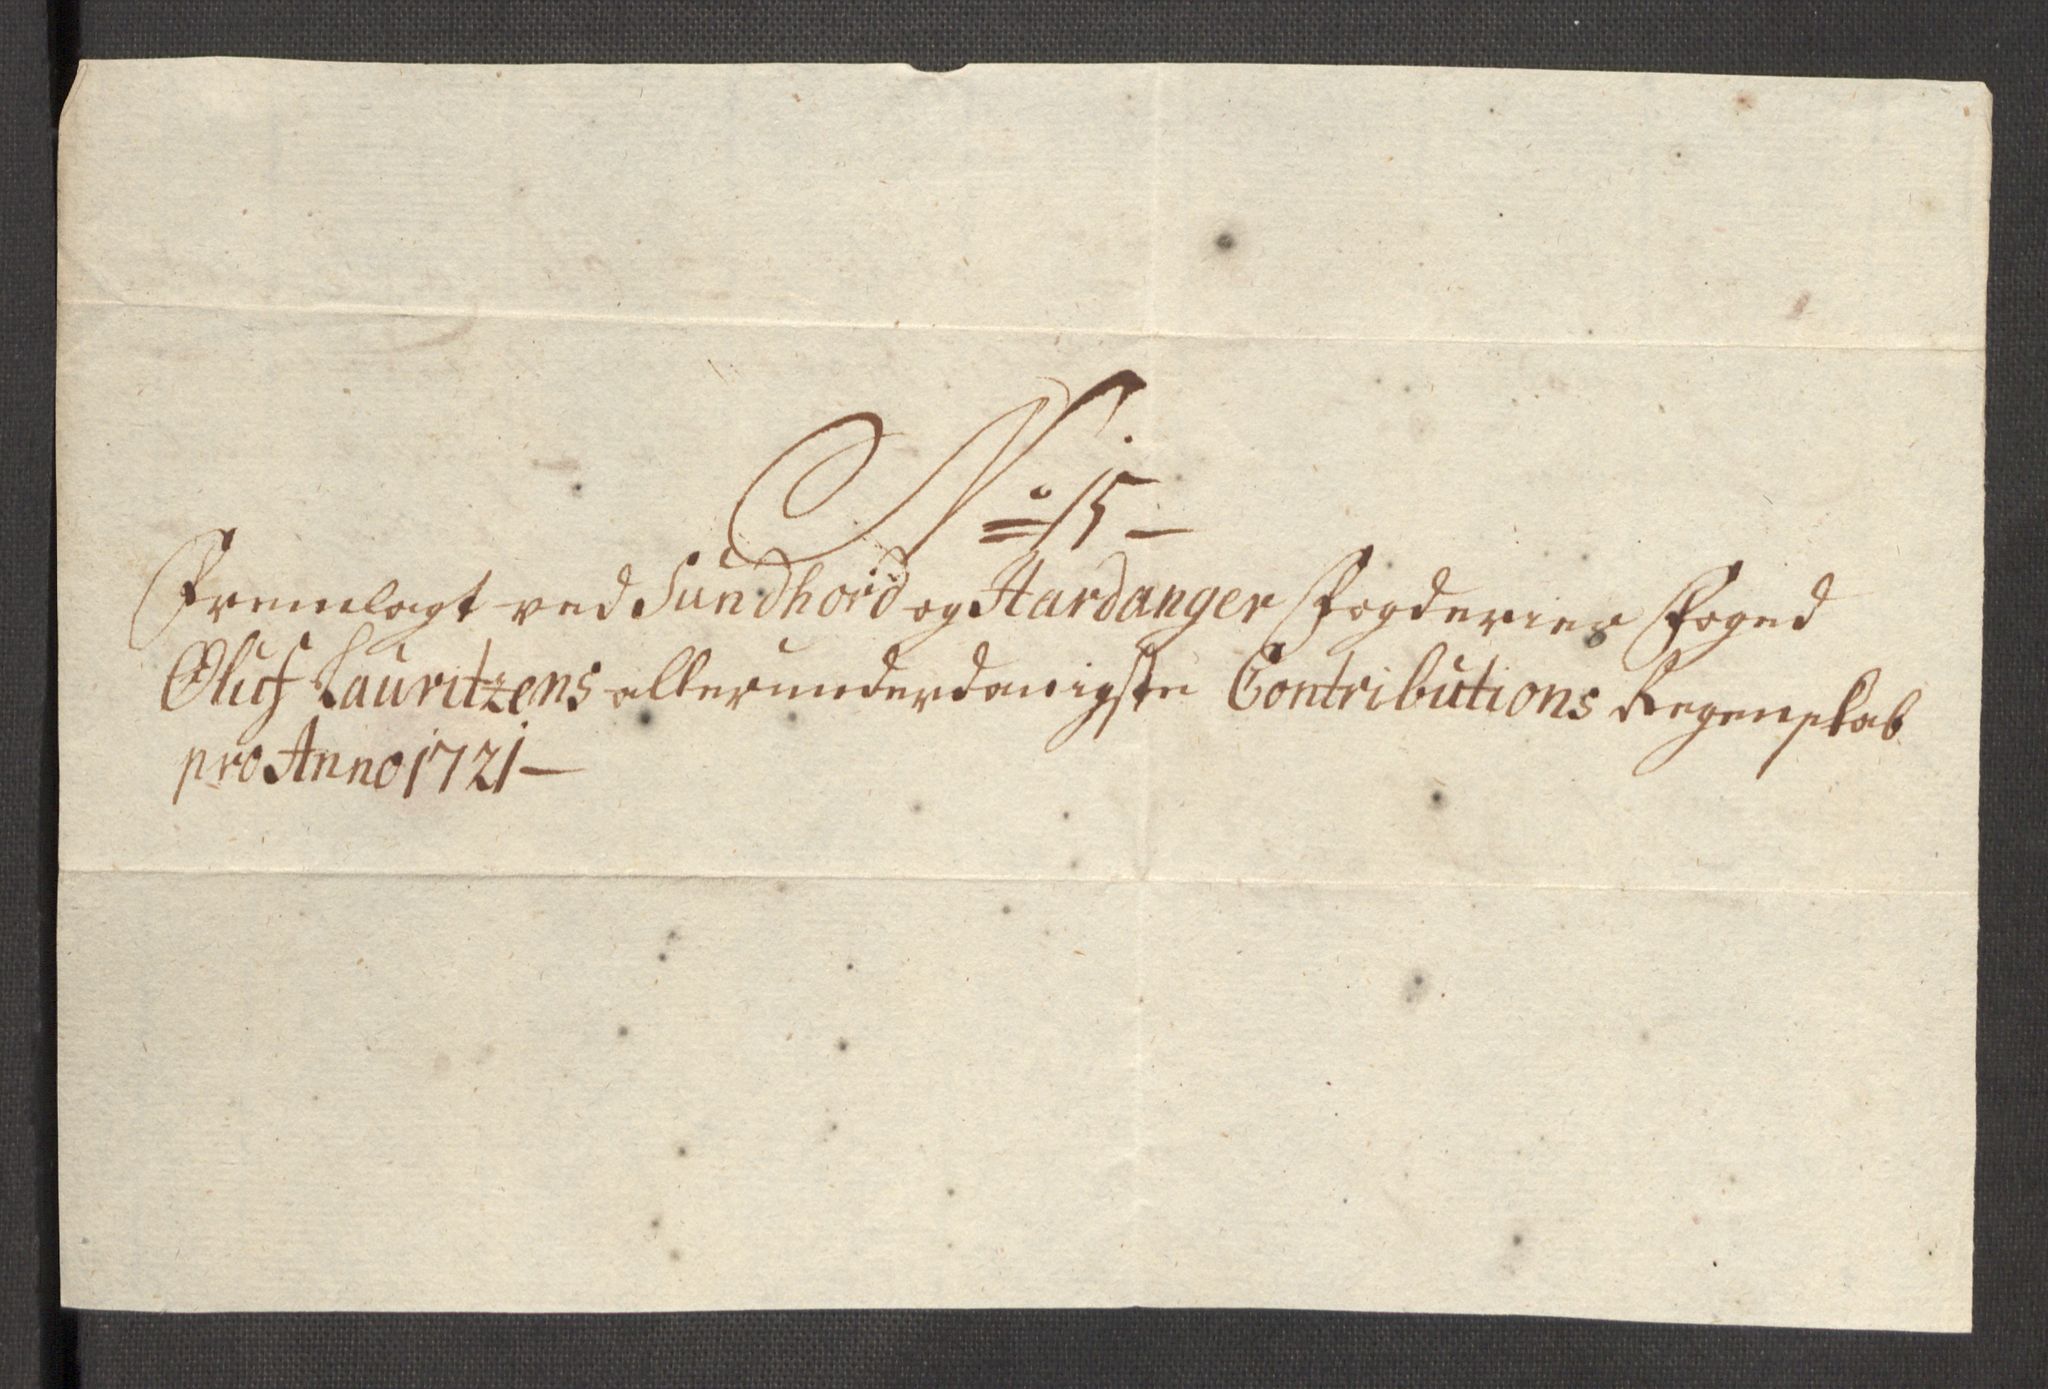 No 15 –
Fremlagt ved Sundhord og Hardanger Fogderier Foged
Oluf Lauritzens allerunderdanigste Contributions Regenskab
pro Anno 1721 –